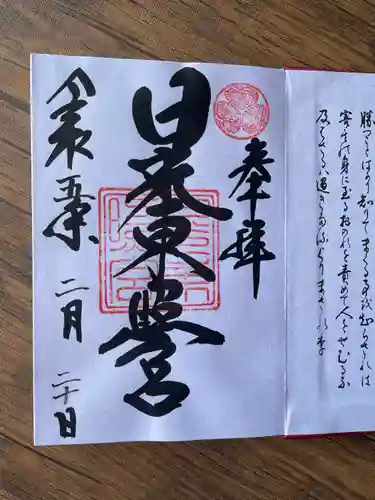 奉拝
東照宮
令和五年
二月
二十日
勝つことばかり知りてまくる事を知らざれは
害其の身に至るおのれを責めて人をせむるな
及ばざるハ過きたるよりまされり